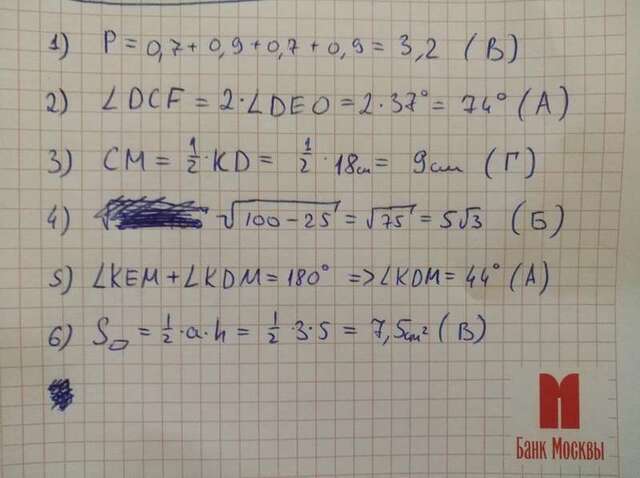 1) P = 0,7 + 0,9 + 0,7 + 0,9 = 3,2 (В)
2) ∠DCF = 2·∠DEO = 2·37° = 74° (А)
3) CM = 1/2·KD = 1/2·18см = 9см (Г)
4) √100-25 = √75 = 5√3 (Б)
5) ∠KEM + ∠KDM = 180° => ∠KDM = 44° (А)
6) S▱ = 1/2·a·h = 1/2·3·5 = 7,5см² (В)
Банк Москвы